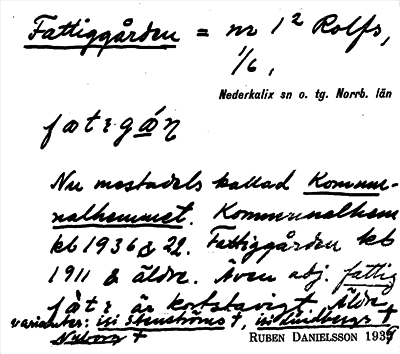 Fattiggården = nr 1² Rolfs,
1/6,
Nederkalix sn o. tg. Norrb. län
fatɩgáɳ
Nu mestadels kallad Kommu-
nalhemmet. Kommunalhem
kb 1936 & 22. Fattiggården kb
1911 & äldre. Även adj. fattig
fàtɩ är kortstavigt. Äldre
varianter: isi Stenströms †, isi Lindbergs †
Nyborg †
RUBEN DANIELSSON 1939